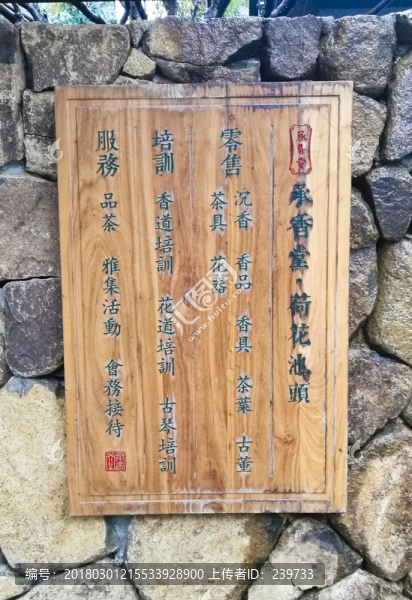 承香堂
承香堂·荷花池頭
零售
沉香 香品 香具 茶葉 古董
茶具 花器
培訓
香道培訓 花道培訓 古琴培訓
服務
品茶 雅集活動 會務接待
编号:20180301215533928900 上传者ID:239733